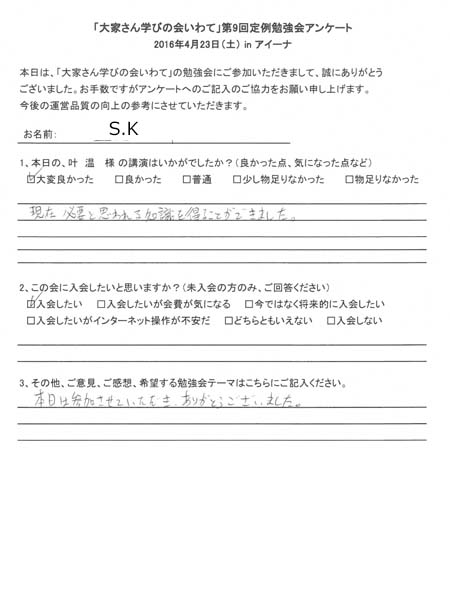 「大家さん学びの会いわて」第9回定例勉強会アンケート
2016年4月23日（土） in アイーナ
本日は、「大家さん学びの会いわて」の勉強会にご参加いただきまして、誠にありがとう
ございました。お手数ですがアンケートへのご記入のご協力をお願い申し上げます。
今後の運営品質の向上の参考にさせていただきます。
お名前: S.K
1、本日の、叶　温　様 の講演はいかがでしたか？（良かった点、気になった点など）
☑大変良かった　□良かった　□普通　□少し物足りなかった　□物足りなかった
現在 必要と思われる知識を得ることができました。
2、この会に入会したいと思いますか？（未入会の方のみ、ご回答ください）
☑入会したい　□入会したいが会費が気になる　□今ではなく将来的に入会したい
□入会したいがインターネット操作が不安だ　□どちらともいえない　□入会しない
3、その他、ご意見、ご感想、希望する勉強会テーマはこちらにご記入ください。
本日は参加させていただき、ありがとうございました。